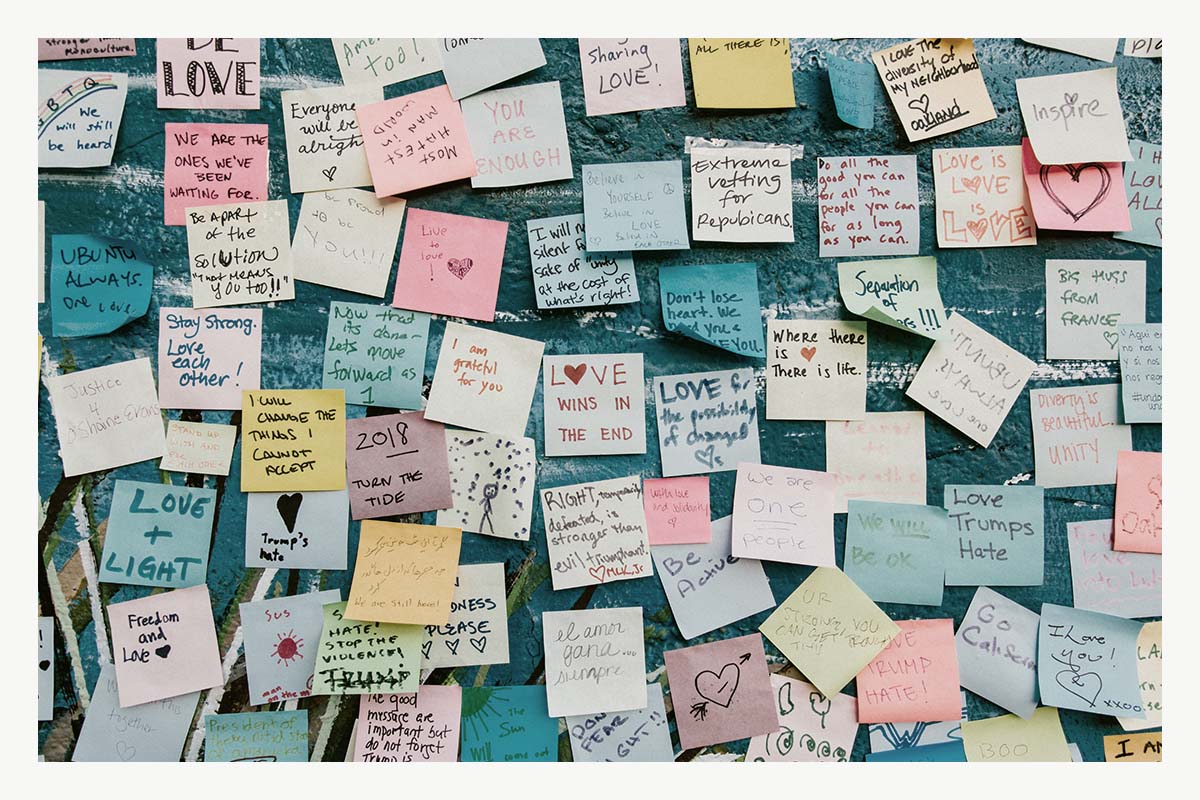 BE
LOVE
too!
Sharing
LOVE!
ALL THERE IS!
I LOVE THE
diversity of
MY NEIGHBORHOOD
OAKLAND
BTQ
We
will still
be heard
Everyone
will be
alright
MOST
HATEST
MAN in
WORLD
YOU
ARE
ENOUGH
Inspire
WE ARE THE
ONES WE'VE
BEEN
WAITING FOR.
Believe in
YOURSELF
Believe in
LOVE
Believe in
EACH OTHER
Extreme
vetting
for
Republicans.
Do all the
good you can
for all the
people you can
for as long
as you can.
LOVE is
LOVE
is
LOVE
BE APART
of the
SOLUTION
"THAT MEANS
YOU TOO!!"
be proud
to be
You!!!
Live
to
love
!
I will n
silent f
sake of "unity"
at the cost of
what's right!
UBUNTU
ALWAYS.
One Love.
Don't lose
heart. We
Separation
of
BIG HUGS
FROM
FRANCE
Stay Strong.
Love
each
other!
Now that
its done-
lets move
forward as
1
I am
grateful
for you
Where there
is
There is life.
UBUNTU
ALWAYS.
one love
Justice
4
I WILL
CHANGE THE
THINGS I
CANNOT
ACCEPT
LOVE
WINS IN
THE END
LOVE &
the possibility
of changed
STAND UP
WITH AND
FOR
EACH OTHER
2018
TURN THE
TIDE
beautiful.
UNITY
LOVE
+
LIGHT
Trump's
hate
RIGHT, temporarily
defeated, is
stronger than
evil triumphant.
MLK, Jr
with love
and solidarity
we are
one
people
We will
Be OK
Love
Trumps
Hate
We are still here!
Be
Active
Freedom
and
Love
SUS
HATE!
STOP THE
VIOLENCE!
TRUMP
PLEASE
el amor
gana...
siempre.
UR
STRONG, YOU
CAN GET
TRUMP
HATE!
Go
I Love
you!
xxoo
together
President of
the United
The good
message are
important but
do not forget
Trump is
The
Sun
will come out
FEAR
BOO
I AM